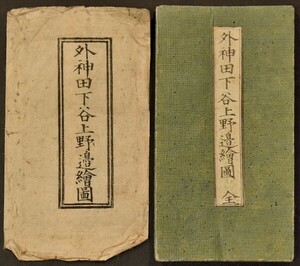 外神田下谷上野邉繪圖
外神田下谷上野邉繪圖 全